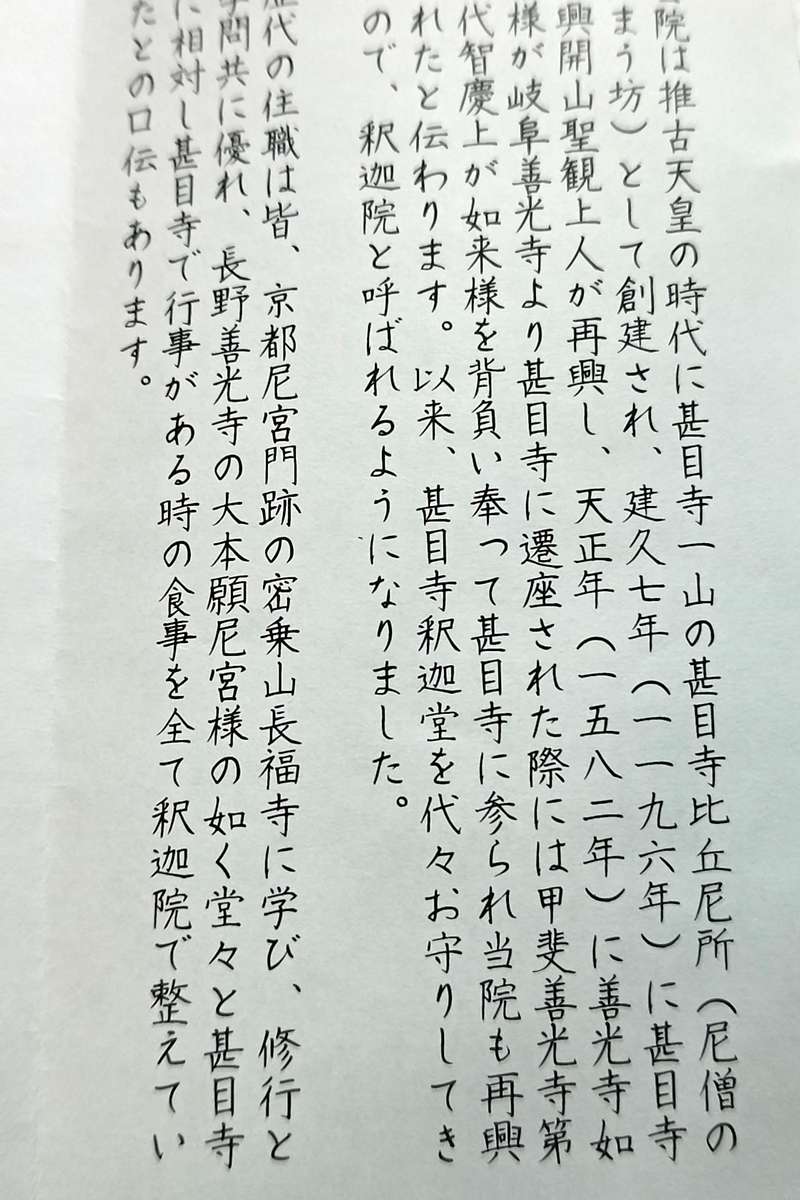 院は推古天皇の時代に甚目寺一山の甚目寺比丘尼所（尼僧の
まう坊）として創建され、建久七年（一一九六年）に甚目寺
興開山聖観上人が再興し、天正年（一五八二年）に善光寺如
様が岐阜善光寺より甚目寺に遷座された際には甲斐善光寺第
代智慶上が如来様を背負い奉って甚目寺に参られ当院も再興
れたと伝わります。以来、甚目寺釈迦堂を代々お守りしてき
ので、釈迦院と呼ばれるようになりました。
歴代の住職は皆、京都尼宮門跡の密乗山長福寺に学び、修行と
学問共に優れ、長野善光寺の大本願尼宮様の如く堂々と甚目寺
に相対し甚目寺で行事がある時の食事を全て釈迦院で整えてい
たとの口伝もあります。